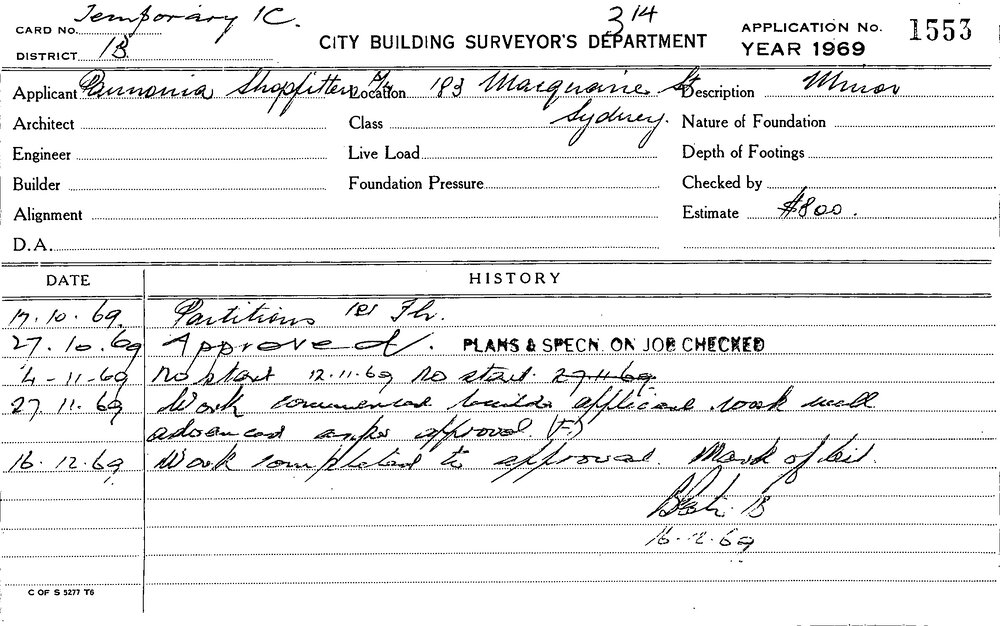 CARD No. Temporary 1C. 314
CITY BUILDING SURVEYOR'S DEPARTMENT
APPLICATION No. 1553
DISTRICT 1B
YEAR 1969
Applicant Pannonia Shopfitters P/L Location 183 Macquarie St Description Minor
Sydney.
Architect Class Nature of Foundation
Engineer Live Load Depth of Footings
Builder Foundation Pressure Checked by
Alignment Estimate $800.
D.A.
DATE HISTORY
17.10.69. Partitions 1st Flr.
27.10.69 Approved. PLANS & SPECN. ON JOB CHECKED
4-11-69 No start 12.11.69 No start. 27.11.69
27.11.69 Work commenced builder applicant work well
advanced as per approval. (F)
16.12.69 Work completed to approval. Mark off list.
B
16.12.69
C OF S 5277 T6